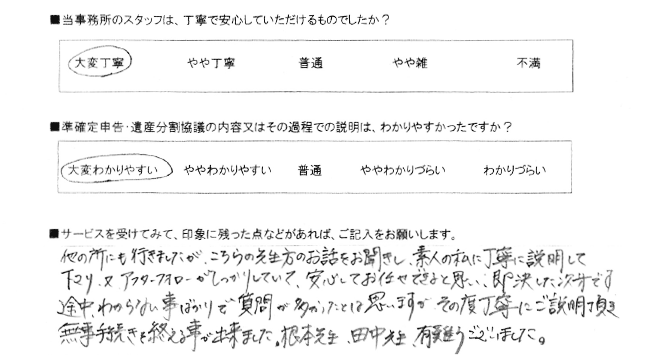 ■当事務所のスタッフは、丁寧で安心していただけるものでしたか？
大変丁寧 やや丁寧 普通 やや雑 不満
■準確定申告・遺産分割協議の内容又はその過程での説明は、わかりやすかったですか？
大変わかりやすい ややわかりやすい 普通 ややわかりづらい わかりづらい
■サービスを受けてみて、印象に残った点などがあれば、ご記入をお願いします。
他の所にも行きましたが、こちらの先生方のお話をお聞きし、素人の私に丁寧に説明して
下さり、又アフターフォローがしっかりしていて、安心してお任せできると思い、即決した次第です
途中、わからない事ばかりで質問が多かったとは思いますが その度丁寧にご説明頂き
無事手続きを終える事が出来ました。根本先生、田中先生、有難うございました。